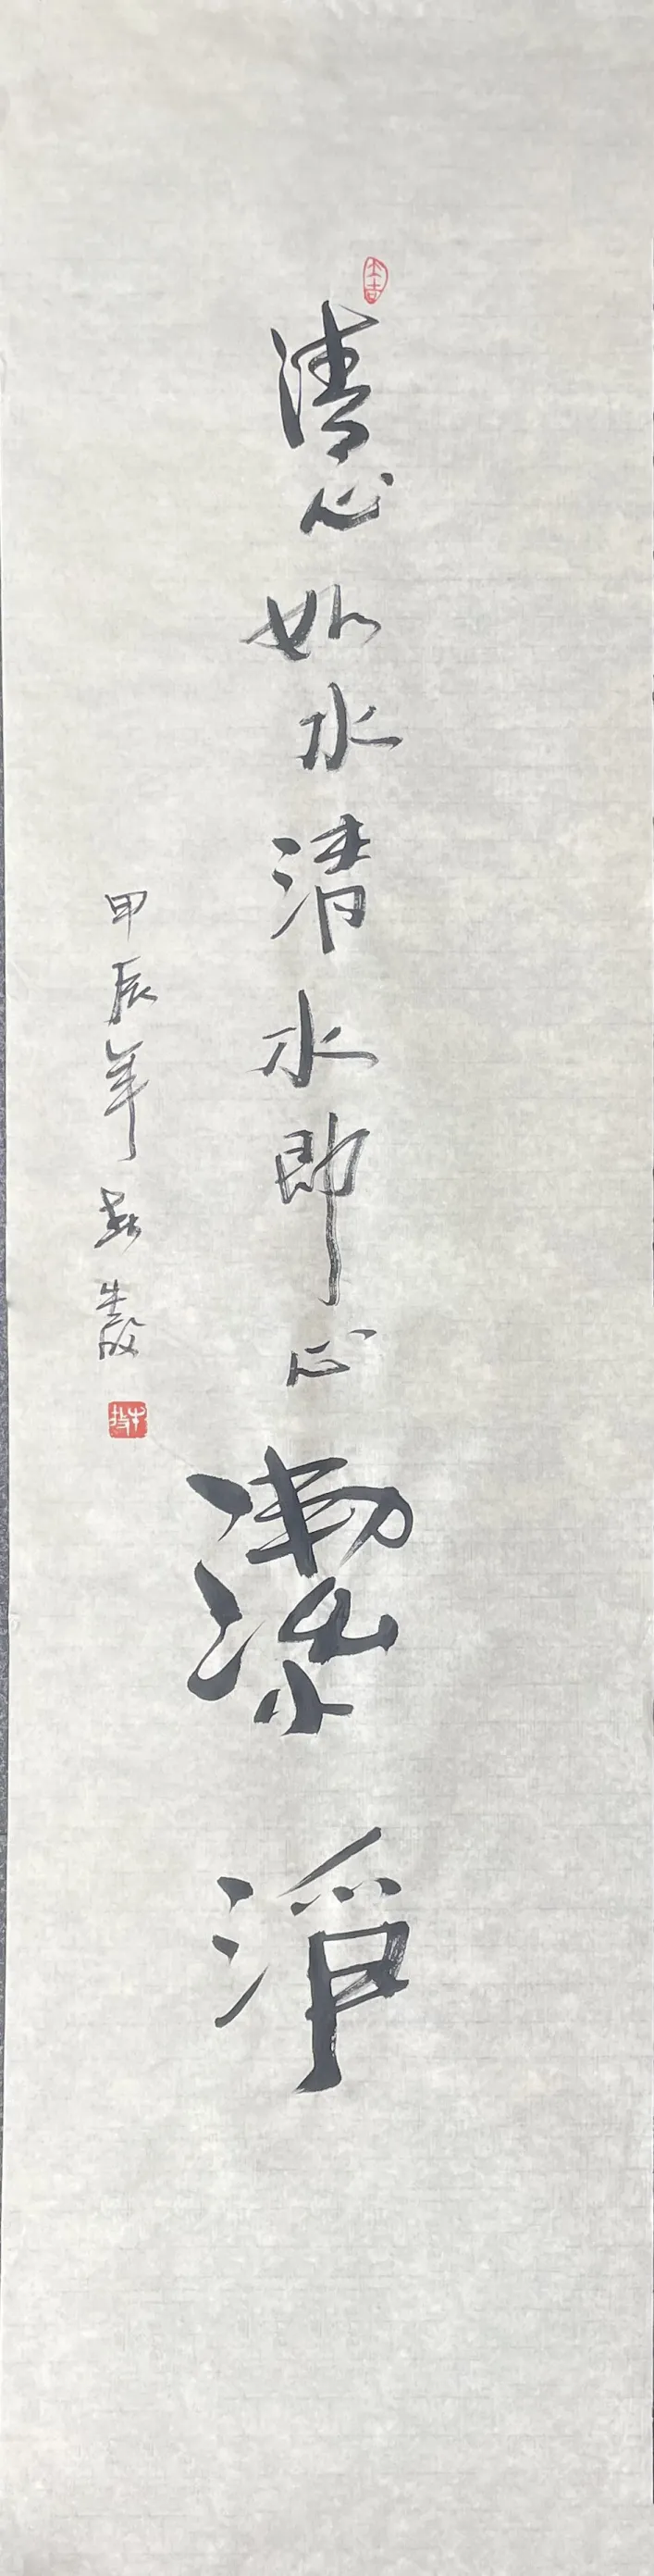 清心如水清水即心潔淨
甲辰年
大吉